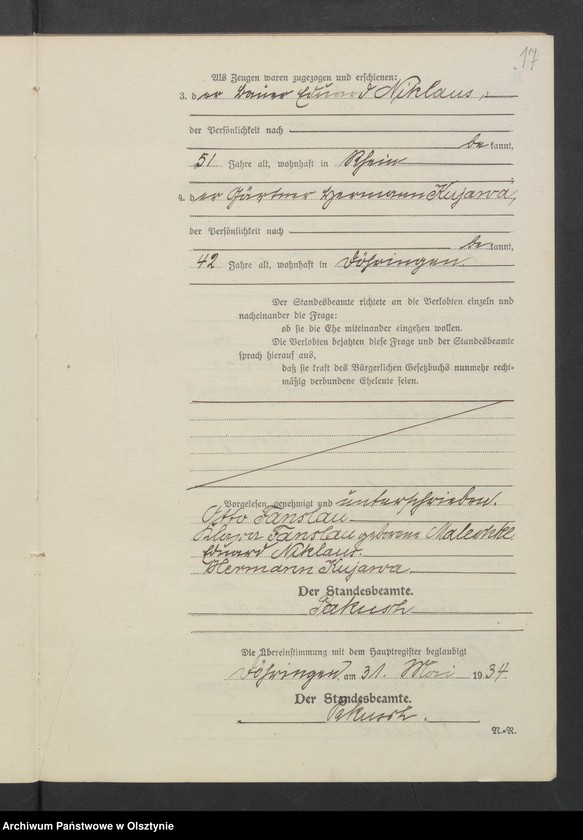 17
Als Zeugen waren zugezogen und erschienen:
3. der Bauer Eduard Niklaus,
der Persönlichkeit nach
bekannt,
51 Jahre alt, wohnhaft in Rhein
4. der Gärtner Hermann Kujawa,
der Persönlichkeit nach
bekannt,
42 Jahre alt, wohnhaft in Döhringen
Der Standesbeamte richtete an die Verlobten einzeln und
nacheinander die Frage:
ob sie die Ehe miteinander eingehen wollen.
Die Verlobten bejahten diese Frage und der Standesbeamte
sprach hierauf aus,
daß sie kraft des Bürgerlichen Gesetzbuchs nunmehr recht-
mäßig verbundene Eheleute seien.
Vorgelesen, genehmigt und unterschrieben.
Otto Tanslau
Klara Tanslau geborene Maleschke
Eduard Niklaus.
Hermann Kujawa.
Der Standesbeamte.
Die Übereinstimmung mit dem Hauptregister beglaubigt
Döhringen, am 31. Mai 1934.
Der Standesbeamte.
N.-R.
Archiwum Państwowe w Olsztynie